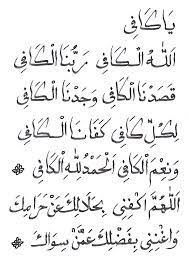 يَا كَافِي
اَللّٰهُ الْكَافِي رَبُّنَا الْكَافِي
قَصَدْنَا الْكَافِي وَجَدْنَا الْكَافِي
لِكُلٍّ كَافِي كَفَانَا الْكَافِي
وَنِعْمَ الْكَافِي اَلْحَمْدُ لِلّٰهِ الْكَافِي
اَللّٰهُمَّ اكْفِنِي بِحَلَالِكَ عَنْ حَرَامِكَ
وَاغْنِنِي بِفَضْلِكَ عَمَّنْ سِوَاكَ